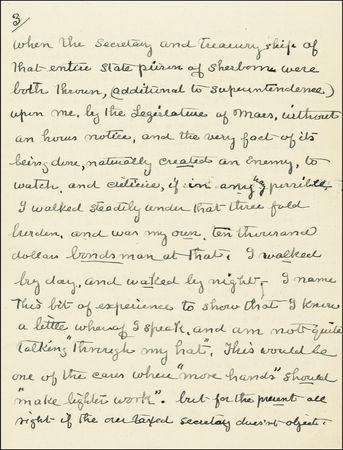 3/
when the Secretary and Treasury ship of
that entire State prison of Sherborn were
both thrown, (additional to Superintendence)
upon me, by the Legislature of Mass, without
an hours notice, and the very fact of its
being done, naturally created an Enemy, to
watch, and criticise, if in any possible.
I walked steadily under that three fold
burden, and was my own, ten thousand
dollar bondsman at that. I walked
by day, and waked by night, - I name
this bit of experience to show that I know
a little whereof I speak, and am not quite
talking "through my hat". This would be
one of the cases where "more hands" should
"make lighter work". but for the present all
right if the over taxed secretary doesn't object.